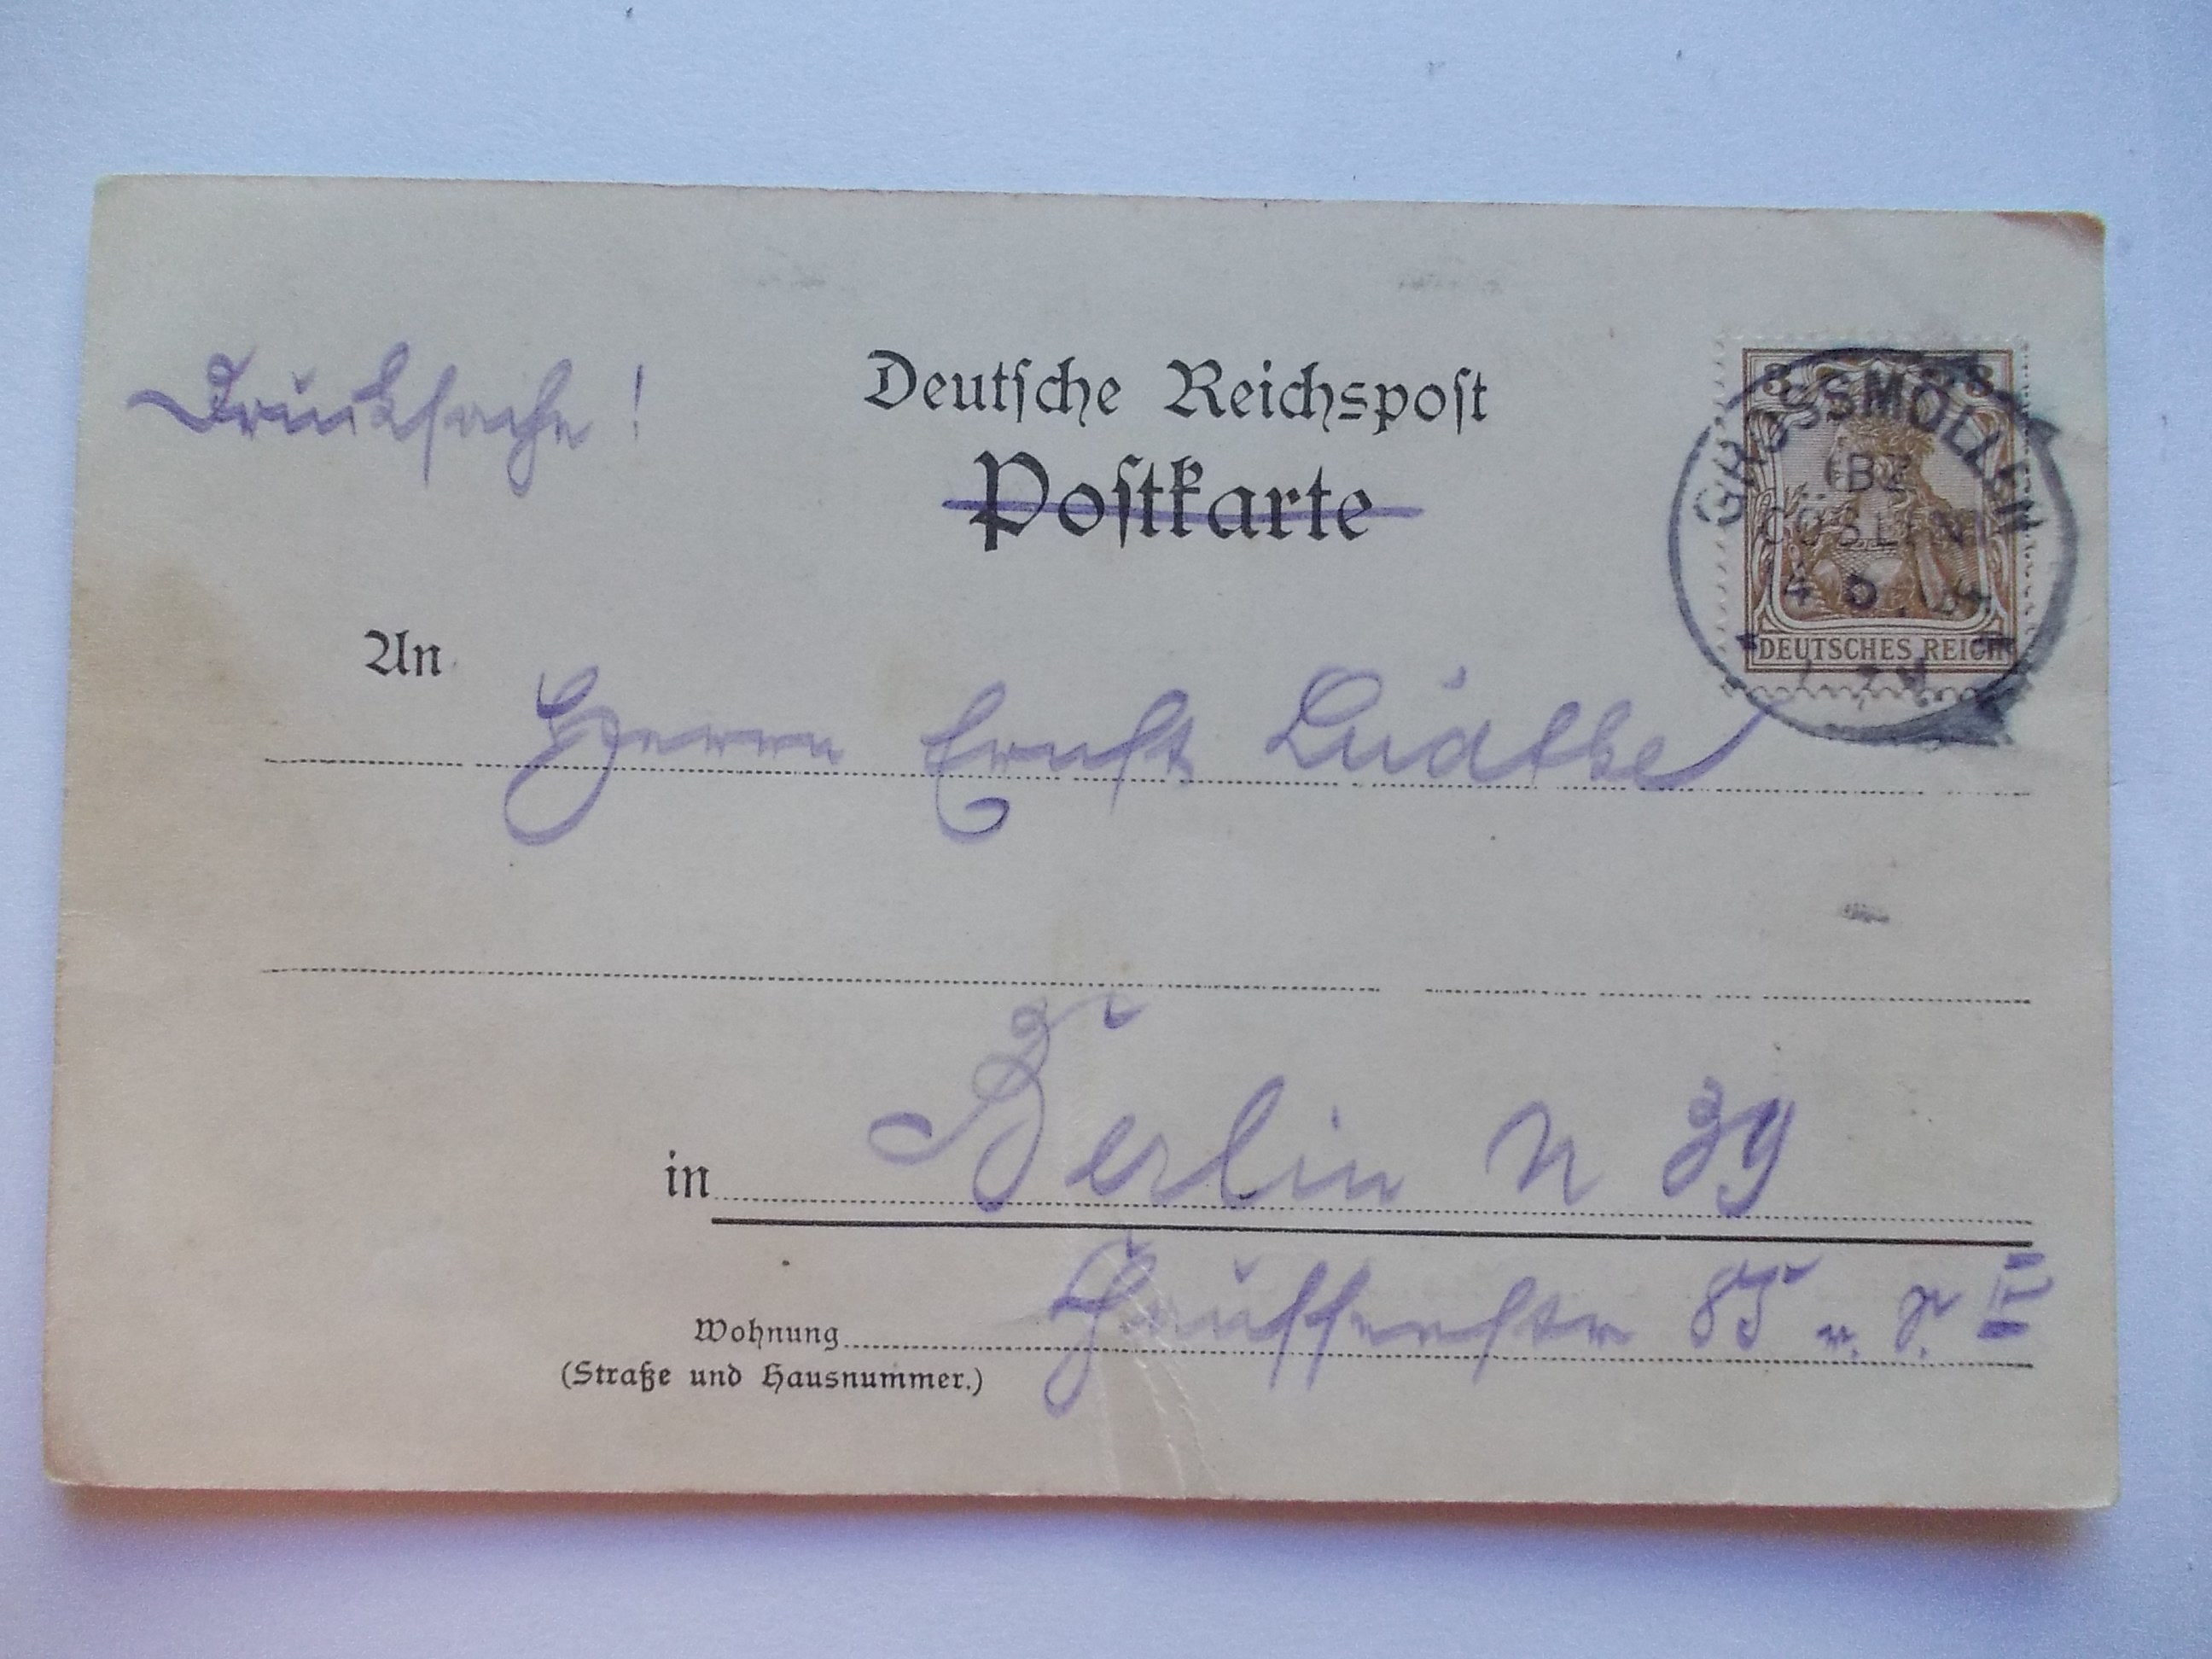 Drucksache!
Deutsche Reichspost
Postkarte
3 3
GROSSMÖLLEN
(BZ
CÖSLIN)
4 6
DEUTSCHES REICH
An Herrn Ernst Lüdtke
in Berlin N 39
Wohnung 85 v. r. II
(Straße und Hausnummer.)